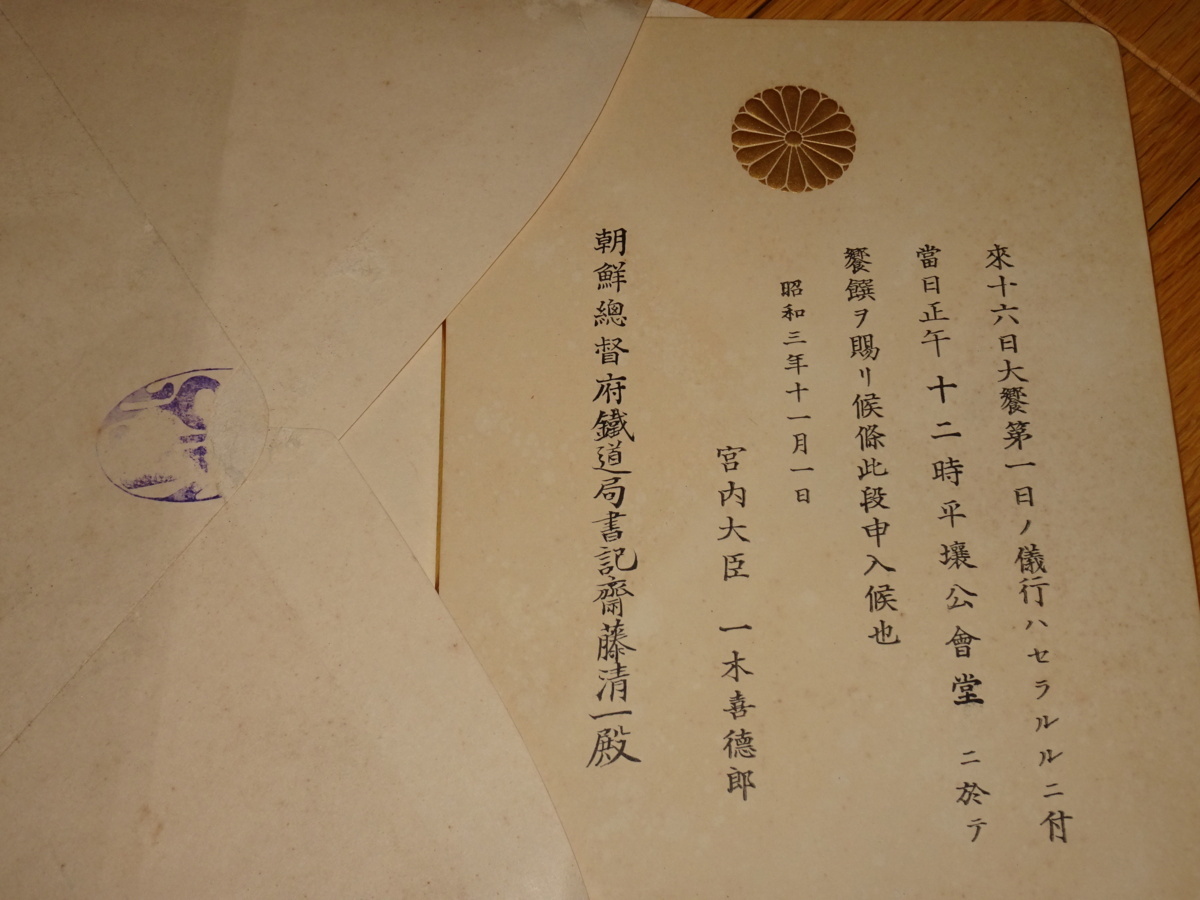 來十六日大饗第一日ノ儀行ハセラルルニ付
當日正午十二時平壤公會堂ニ於テ
饗饌ヲ賜リ候條此段申入候也
昭和三年十一月一日
宮内大臣 一木喜德郎
朝鮮總督府鐵道局書記齋藤清一殿